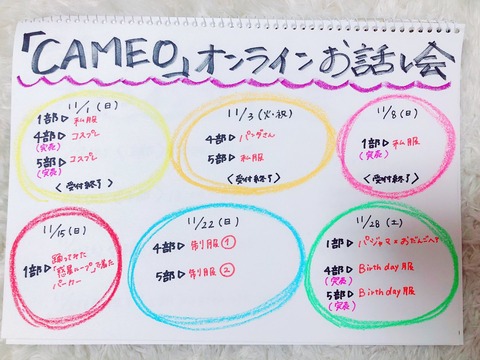 「CAMEO」オンラインお話し会
11/1(日)
1部▷私服
4部▷コスプレ
(完売)
5部▷コスプレ
(完売)
<受付終了>
11/3(火・祝)
4部▷パンダさん
5部▷私服
<受付終了>
11/8(日)
1部▷私服
(完売)
<受付終了>
11/15(日)
1部▷踊ってみた
「惑星ループ」で着た
パーカー
11/22(日)
4部▷制服①
5部▷制服②
11/28(土)
1部▷パジャマ+おだんごヘア
4部▷Birthday服
(完売)
5部▷Birthday服
(完売)